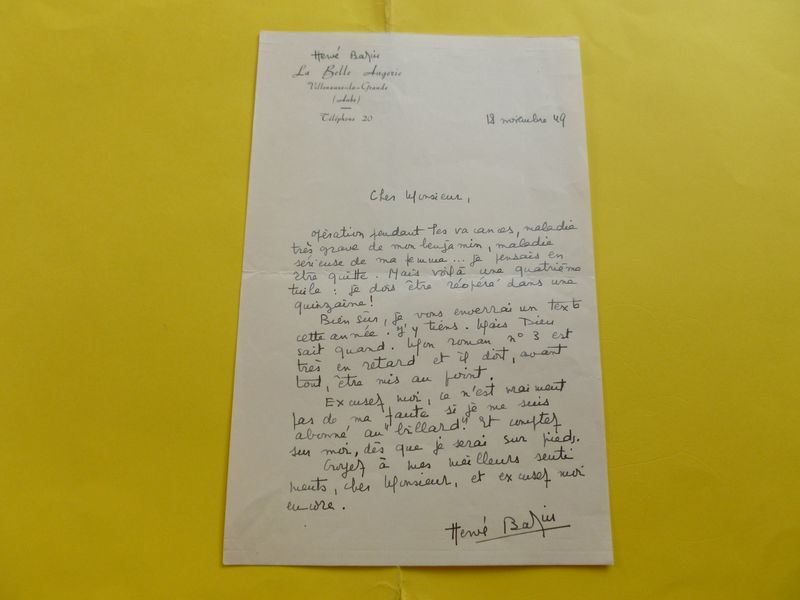 Hervé Bazin
La Belle Angerie
Villenauxe-la-Grande
(Aube)
Téléphone 20
18 novembre 49
Cher Monsieur,
Opération pendant les vacances, maladie
très grave de mon benjamin, maladie
sérieuse de ma femme... je pensais en
être quitte. Mais voilà une quatrième
tuile : je dois être réopéré dans une
quinzaine !
Bien sûr, je vous enverrai un texte
cette année. J'y tiens. Mais Dieu
sait quand. Mon roman n° 3 est
très en retard et il doit, avant
tout, être mis au point.
Excusez moi, ce n'est vraiment
pas de ma faute si je me suis
abonné au "billard". Et comptez
sur moi, dès que je serai sur pieds.
Croyez à mes meilleurs senti
ments, cher Monsieur, et excusez moi
encore.
Hervé Bazin